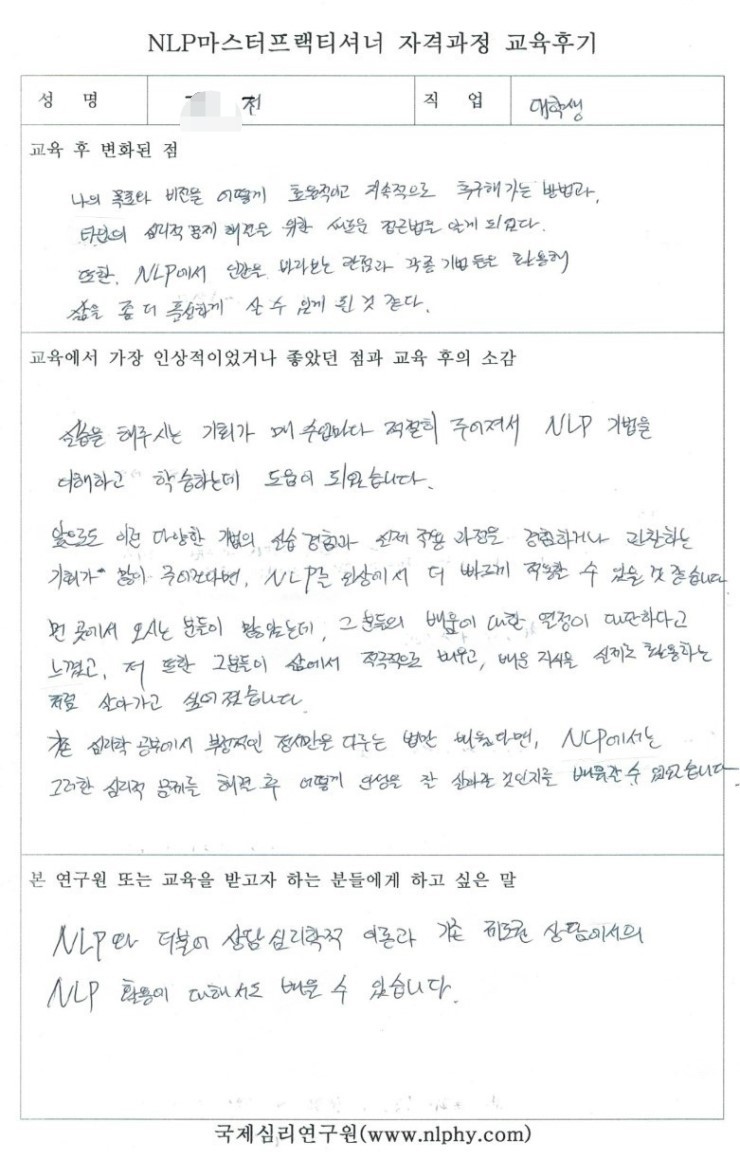 NLP마스터프랙티셔너 자격과정 교육후기
성 명 천 직 업 대학생
교육 후 변화된 점
나의 목표와 비전을 어떻게 효율적이고 지속적으로 추구해가는 방법과,
타인의 심리적 문제 해결을 위한 새로운 접근법을 알게 되었다.
또한, NLP에서 인간을 바라보는 관점과 각종 기법 등을 활용해
삶을 좀 더 풍성하게 살 수 있게 된 것 같다.
교육에서 가장 인상적이었거나 좋았던 점과 교육 후의 소감
실습을 해주시는 기회가 매 수업마다 적절히 주어져서 NLP 기법을
이해하고 학습하는데 도움이 되었습니다.
앞으로도 이런 다양한 기법의 실습 경험과 실제 적용 과정을 경험하거나 관찰하는
기회가 많이 주어진다면, NLP를 일상에서 더 빠르게 적용할 수 있을 것 같습니다
먼 곳에서 오시는 분들이 많았는데, 그분들의 배움에 대한 열정이 대단하다고
느꼈고, 저 또한 그분들이 삶에서 적극적으로 배우고, 배운 지식을 실제로 활용하는
처럼 살아가고 싶어졌습니다.
기존 심리학 공부에서 부정적인 정서만을 다루는 법만 배웠다면, NLP에서는
그러한 심리적 문제를 해결 후 어떻게 인생을 잘 살아갈 것인지를 배울 수 있었습니다.
본 연구원 또는 교육을 받고자 하는 분들에게 하고 싶은 말
NLP와 더불어 상담심리학적 이론과 기존 상담에서의
NLP 활용에 대해서도 배울 수 있습니다.
국제심리연구원(www.nlphy.com)